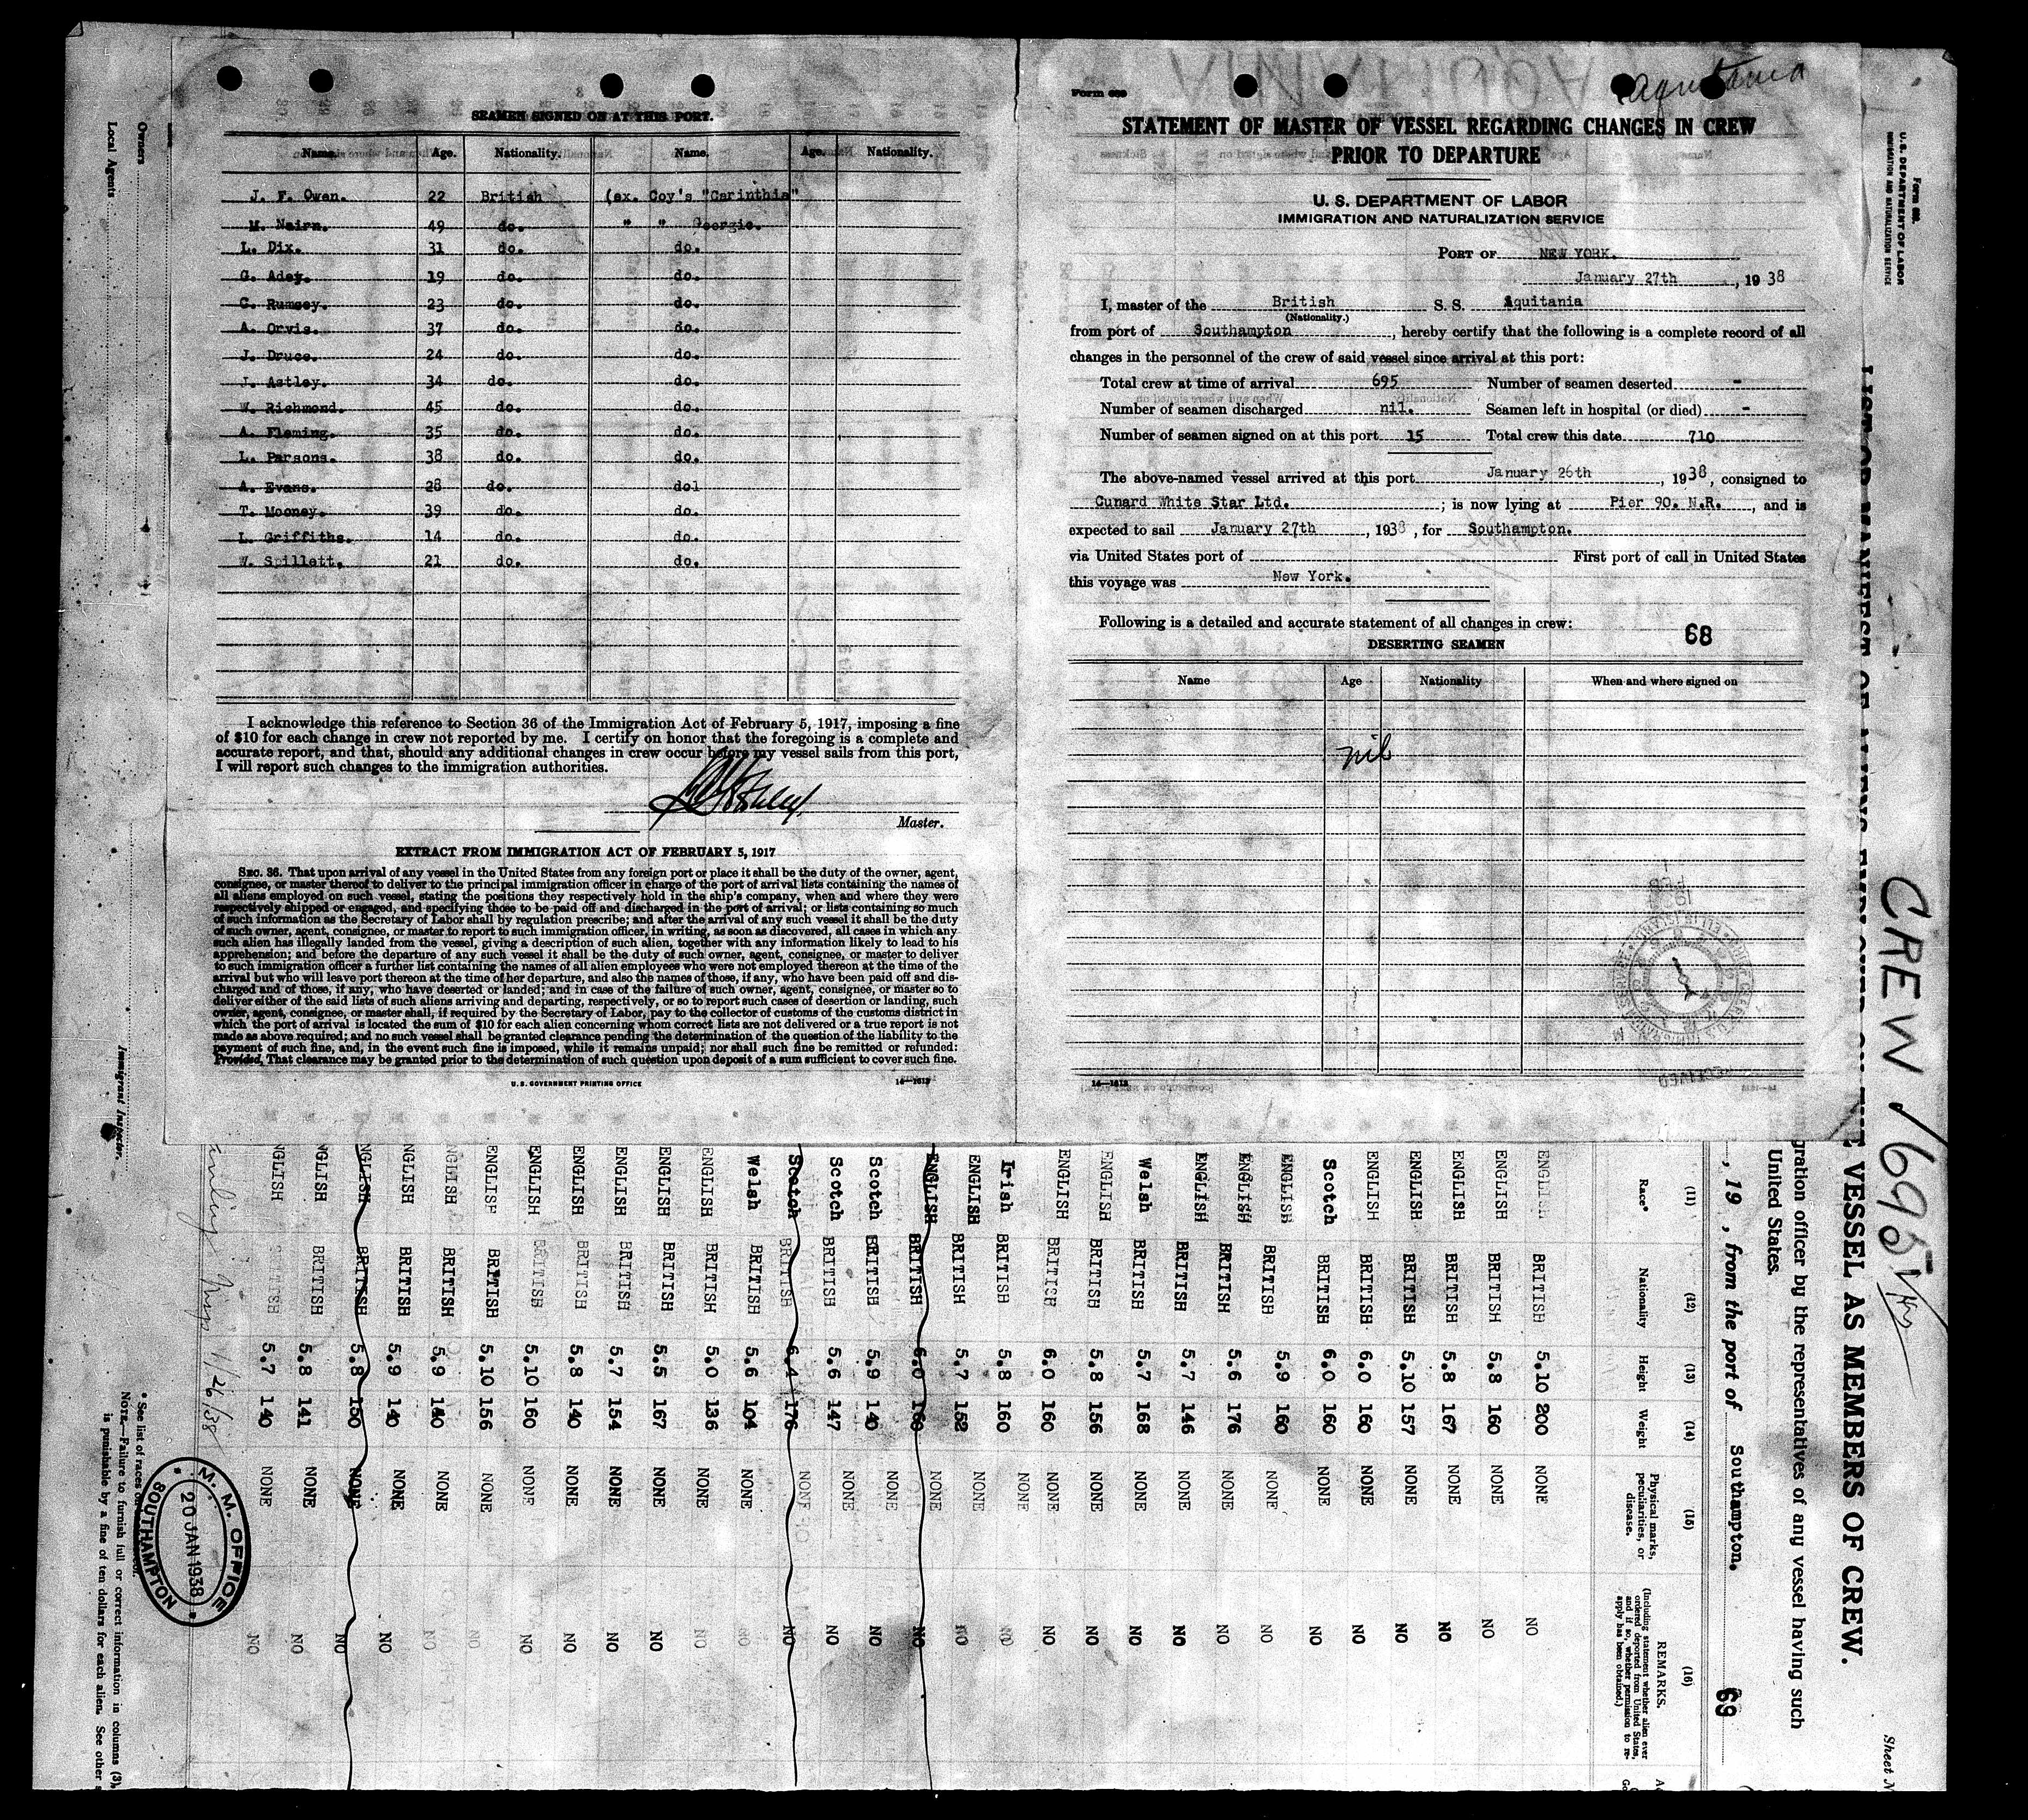 SEAMEN SIGNED ON AT THIS PORT.
Name. Age. Nationality. Name. Age. Nationality.
J. F. Owen. 22 British (ex. Coy's "Carinthia"
M. Nairn. 49 do. " " Georgic.
L. Dix. 31 do. do.
G. Adey. 19 do. do.
C. Rumsey. 23 do. do.
A. Orvis. 37 do. do.
J. Druce. 24 do. do.
J. Astley. 34 do. do.
W. Richmond. 45 do. do.
A. Fleming. 35 do. do.
L. Parsons. 38 do. do.
A. Evans. 28 do. do1
T. Mooney. 39 do. do.
L. Griffiths. 14 do. do.
W. Spillett. 21 do. do.
I acknowledge this reference to Section 36 of the Immigration Act of February 5, 1917, imposing a fine
of $10 for each change in crew not reported by me. I certify on honor that the foregoing is a complete and
accurate report, and that, should any additional changes in crew occur before my vessel sails from this port,
I will report such changes to the immigration authorities.
Master.
EXTRACT FROM IMMIGRATION ACT OF FEBRUARY 5, 1917
SEC. 36. That upon arrival of any vessel in the United States from any foreign port or place it shall be the duty of the owner, agent,
consignee, or master thereof to deliver to the principal immigration officer in charge of the port of arrival lists containing the names of
all aliens employed on such vessel, stating the positions they respectively hold in the ship's company, when and where they were
respectively shipped or engaged, and specifying those to be paid off and discharged in the port of arrival; or lists containing so much
of such information as the Secretary of Labor shall by regulation prescribe; and after the arrival of any such vessel it shall be the duty
of such owner, agent, consignee, or master to report to such immigration officer, in writing, as soon as discovered, all cases in which any
such alien has illegally landed from the vessel, giving a description of such alien, together with any information likely to lead to his
apprehension; and before the departure of any such vessel it shall be the duty of such owner, agent, consignee, or master to deliver
to such immigration officer a further list containing the names of all alien employees who were not employed thereon at the time of the
arrival but who will leave port thereon at the time of her departure, and also the names of those, if any, who have been paid off and dis-
charged and of those, if any, who have deserted or landed; and in case of the failure of such owner, agent, consignee, or master so to
deliver either of the said lists of such aliens arriving and departing, respectively, or so to report such cases of desertion or landing, such
owner, agent, consignee, or master shall, if required by the Secretary of Labor, pay to the collector of customs of the customs district in
which the port of arrival is located the sum of $10 for each alien concerning whom correct lists are not delivered or a true report is not
made as above required; and no such vessel shall be granted clearance pending the determination of the question of the liability to the
payment of such fine, and, in the event such fine is imposed, while it remains unpaid; nor shall such fine be remitted or refunded:
Provided, That clearance may be granted prior to the determination of such question upon deposit of a sum sufficient to cover such fine.
U. S. GOVERNMENT PRINTING OFFICE 14—1613
Form 689
Aquitania
STATEMENT OF MASTER OF VESSEL REGARDING CHANGES IN CREW
PRIOR TO DEPARTURE
U. S. DEPARTMENT OF LABOR
IMMIGRATION AND NATURALIZATION SERVICE
PORT OF NEW YORK.
January 27th, 1938
I, master of the British S. S. Aquitania
(Nationality.)
from port of Southampton, hereby certify that the following is a complete record of all
changes in the personnel of the crew of said vessel since arrival at this port:
Total crew at time of arrival 695 Number of seamen deserted -
Number of seamen discharged nil. Seamen left in hospital (or died) -
Number of seamen signed on at this port 15 Total crew this date 710
The above-named vessel arrived at this port January 26th, 1938, consigned to
Cunard White Star Ltd. ; is now lying at Pier 90. N.R., and is
expected to sail January 27th, 1938, for Southampton.
via United States port of First port of call in United States
this voyage was New York.
Following is a detailed and accurate statement of all changes in crew:
68
DESERTING SEAMEN
Name Age Nationality When and where signed on
nil
14—1613
Form 689
U. S. DEPARTMENT OF LABOR
IMMIGRATION AND NATURALIZATION SERVICE
CREW / 695
VESSEL AS MEMBERS OF CREW.
gration officer by the representatives of any vessel having such
United States.
, 19 , from the port of Southampton.
69
Sheet N
(11) (12) (13) (14) (15) (16)
Race* Nationality Height Weight Physical marks, peculiarities, or disease. REMARKS.
(Including statement whether alien ever
ordered deported from United States,
and if so, whether permission to re-
apply has been obtained.)
ENGLISH BRITISH 5.10 200 NONE NO
ENGLISH BRITISH 5.8 160 NONE NO
ENGLISH BRITISH 5.8 167 NONE NO
ENGLISH BRITISH 5.10 157 NONE NO
ENGLISH BRITISH 6.0 160 NONE NO
Scotch BRITISH 6.0 160 NONE NO
ENGLISH BRITISH 5.9 160 NONE NO
ENGLISH BRITISH 5.6 176 NONE NO
ENGLISH BRITISH 5.7 146 NONE NO
Welsh BRITISH 5.7 168 NONE NO
ENGLISH BRITISH 5.8 156 NONE NO
ENGLISH BRITISH 6.0 160 NONE NO
Irish BRITISH 5.8 160 NONE NO
ENGLISH BRITISH 5.7 152 NONE NO
ENGLISH BRITISH 6.0 160 NONE NO
Scotch BRITISH 5.9 140 NONE NO
Scotch BRITISH 5.6 147 NONE NO
Scotch BRITISH 6.4 176 NONE NO
Welsh BRITISH 5.6 104 NONE NO
ENGLISH BRITISH 5.0 136 NONE NO
ENGLISH BRITISH 5.5 167 NONE NO
ENGLISH BRITISH 5.7 154 NONE NO
ENGLISH BRITISH 5.8 140 NONE NO
ENGLISH BRITISH 5.10 160 NONE NO
ENGLISH BRITISH 5.10 156 NONE NO
ENGLISH BRITISH 5.9 140 NONE NO
NGLISH BRITISH 5.9 140 NONE NO
NGLISH BRITISH 5.8 150 NONE NO
NGLISH BRITISH 5.8 141 NONE NO
NGLISH BRITISH 5.7 140 NONE NO
1/26/38
M. M. OFFICE
20 JAN 1938
SOUTHAMPTON
* See list of races
NOTE.—Failure to furnish full or correct information in columns (3),
is punishable by a fine of ten dollars for each alien. See other s
Immigrant Inspector.
Owners
Local Agents